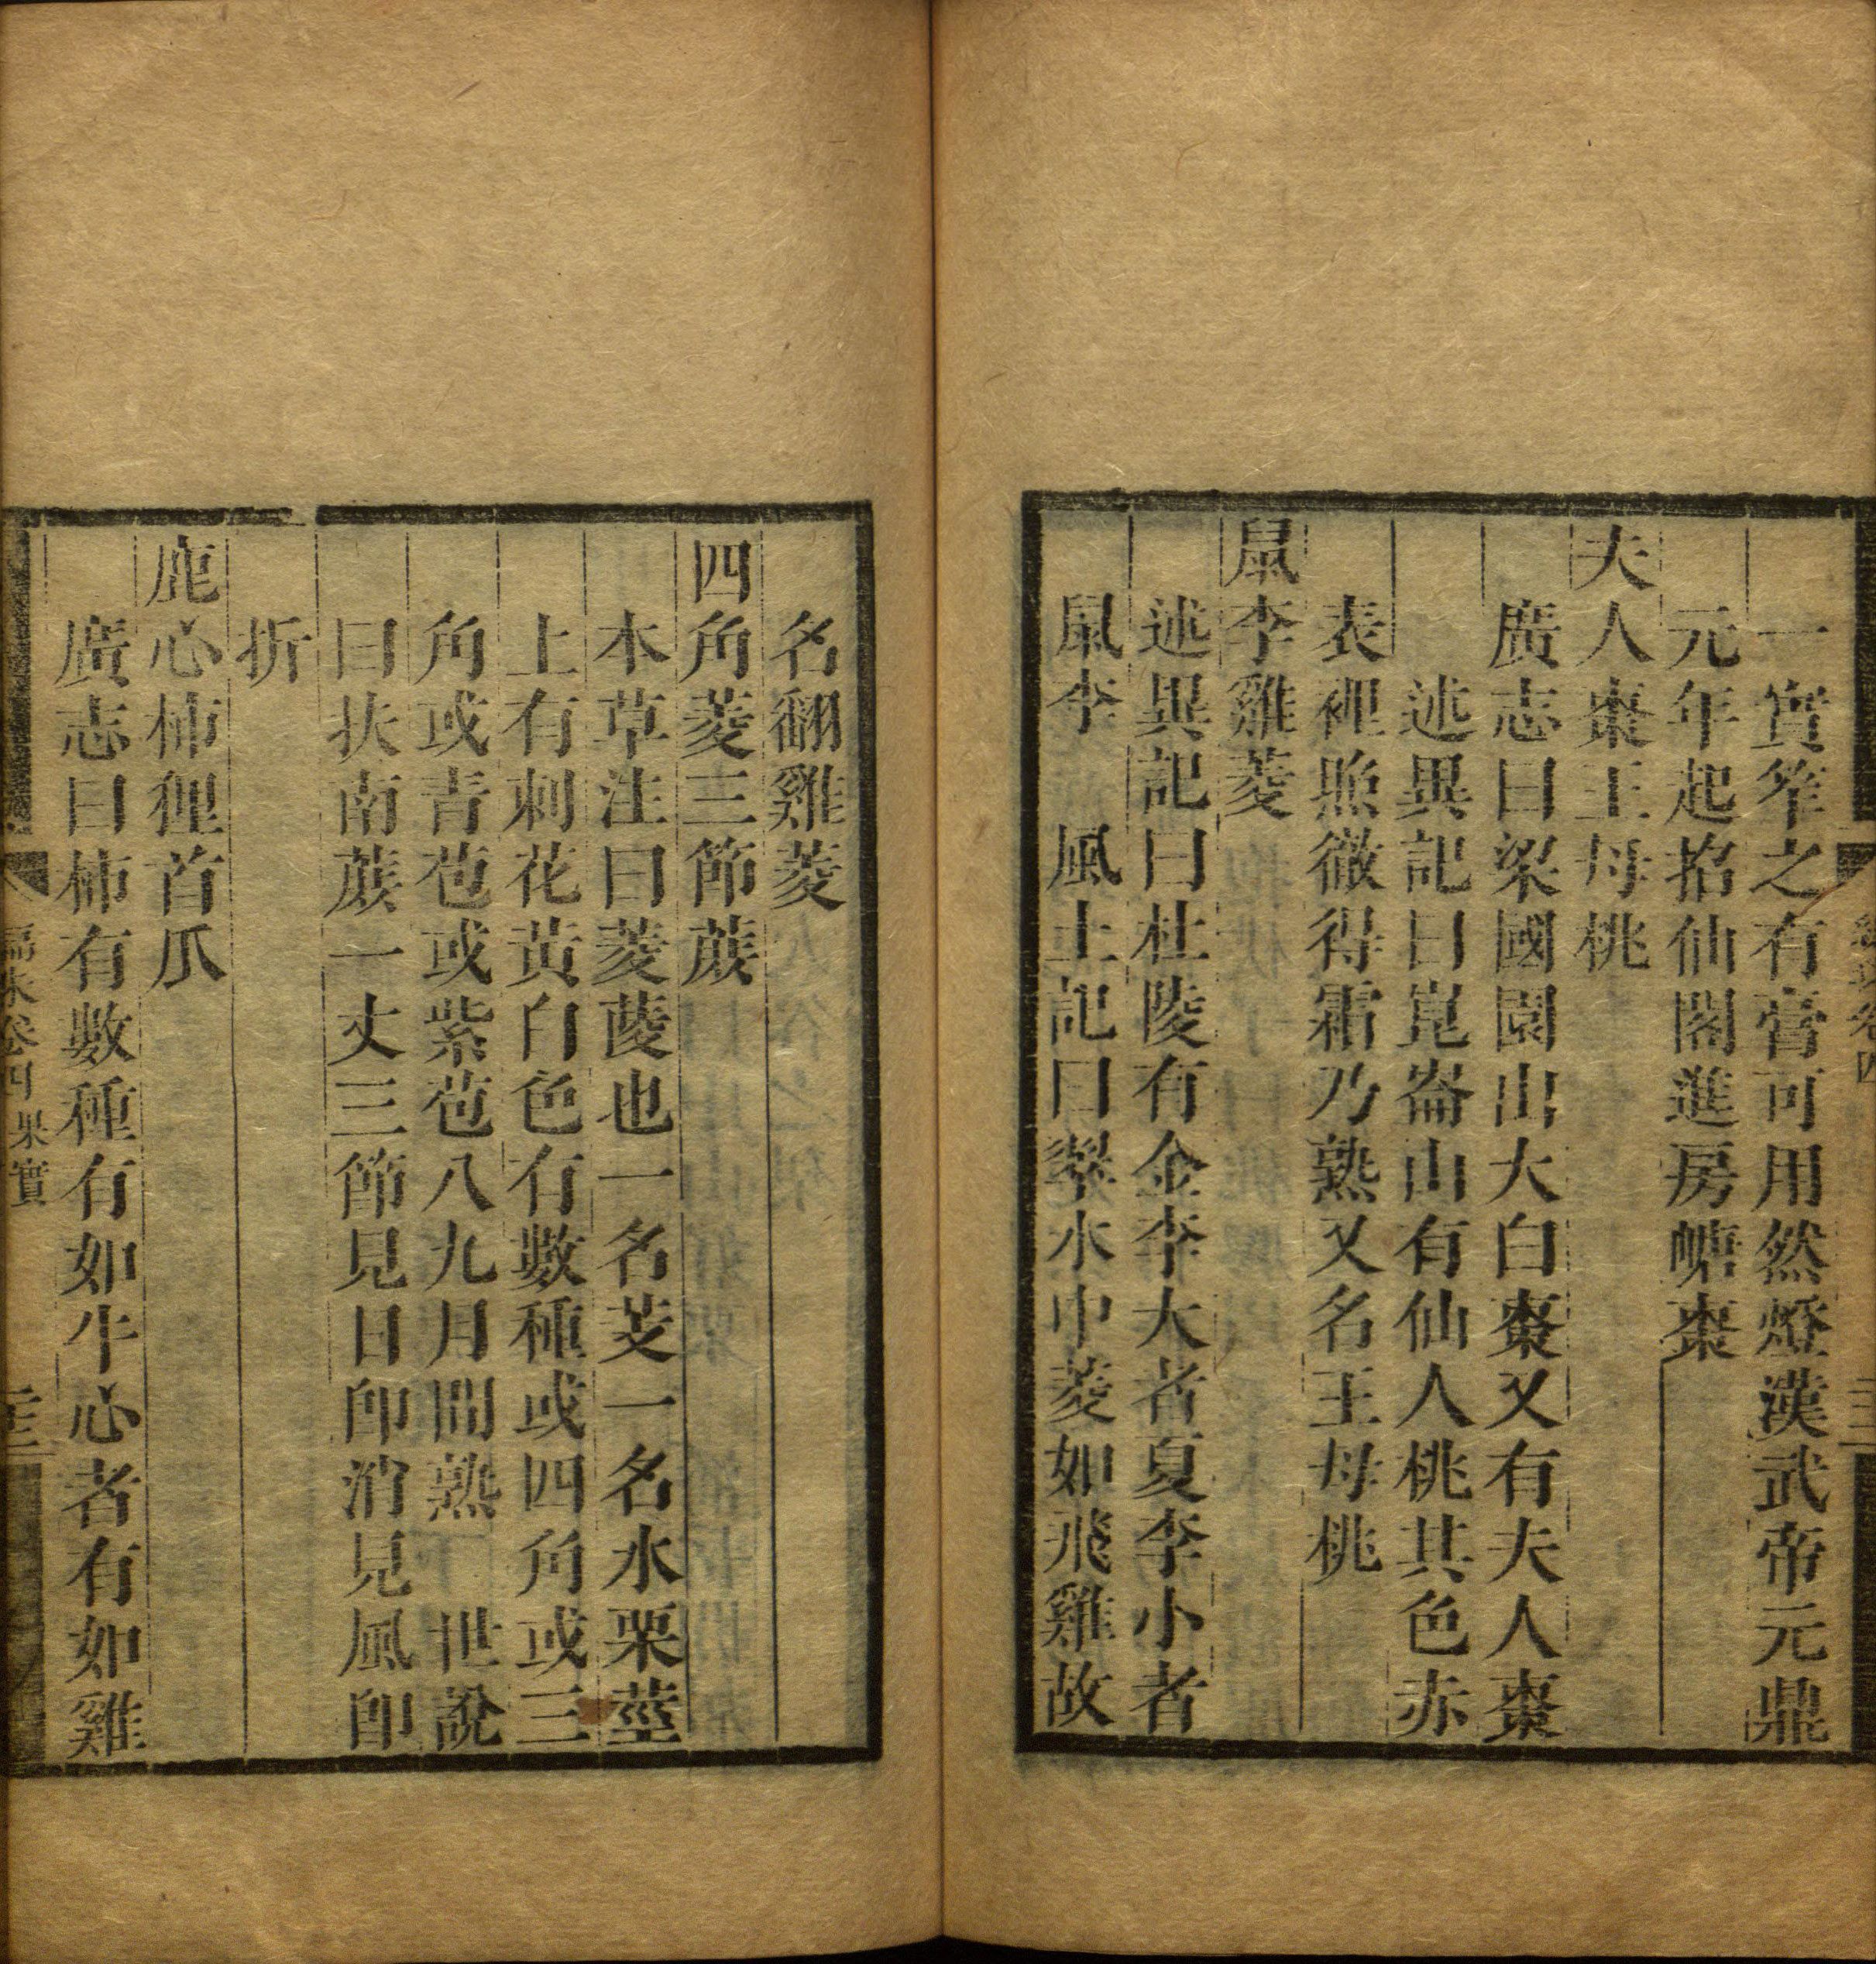 一實笮之有膏可用然燈漢武帝元鼎
元年起招仙閣進房㡏棗
夫人棗王母桃
廣志曰梁國園出大白棗又有夫人棗
述異記曰崑崙山有仙人桃其色赤
表裡照徹得霜乃熟又名王母桃
鼠李雞菱
述異記曰杜陵有金李大者夏李小者
鼠李　風土記曰翠水中菱如飛雞故
名翻雞菱
四角菱三節蔗
本草注曰菱蔆也一名芰一名水栗莖
上有刺花黃白色有數種或四角或三
角或青苞或紫苞八九月間熟　世說
曰扶南蔗一丈三節見日即消見風即
折
鹿心柿狸首瓜
廣志曰柿有數種有如牛心者有如雞
卷四 果實